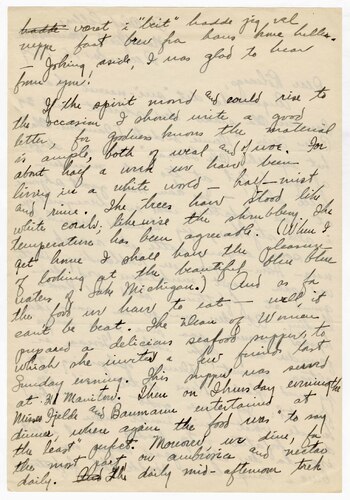 hadde voret i "beit" hadde jeg vel
neppe faat brev fra hans
— Joking aside, I was glad to hear
from you!
If the spirit moved and could rise to
the occasion I should write a good
letter, for goodness knows the material
is ample, both of weal and of woe. For
about half a week we have been
living in a white world — half-mist
and rime. The trees have stood like
white corals; likewise the shrubbery. The
temperature has been agreeable. (When I
get home I shall have the pleasure
of looking at the beautiful blue blue
waters of Lake Michigan.) And as for
the food we have to eat — well, it
can't be beat. The Dean of Women
prepared a delicious seafood supper to
which she invited a few friends last
Sunday evening. This supper was served
at Manitou. Then on Thursday evening the
Misses Fjelde and Baumann entertained at
dinner, when again the food was "to say
the least" perfect. Moreover, we dine, for
the most part, on ambrosia and nectar
daily. The daily mid-afternoon trek